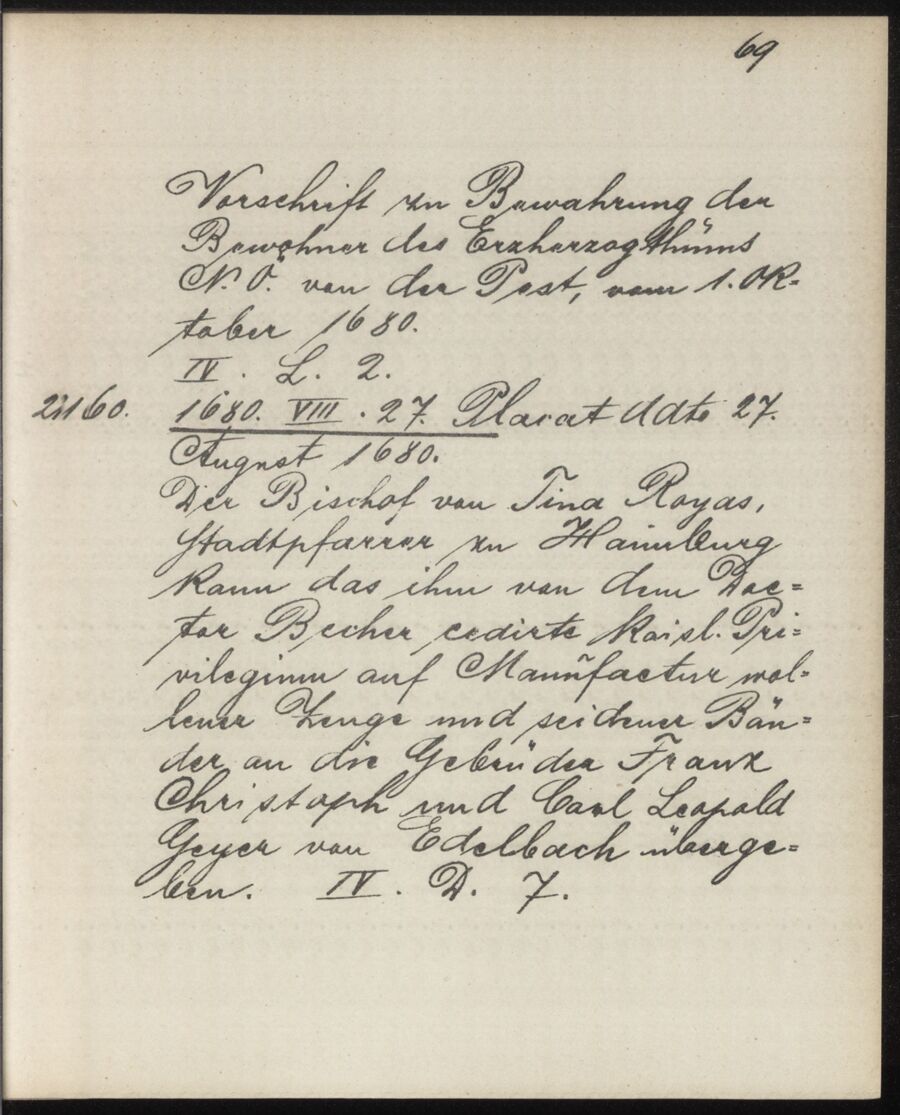 69
Vorschrift zu Bewahrung der
Bewohner des Erzherzogthums
N. Ö. von der Pest, vom 1. Ok-
tober 1680.
IV. L. 2.
1680. VIII. 27. Placat ddto 27.
August 1680.
Der Bischof von Tina Royas,
Stadtpfarrer zu Hainburg
kann das ihm von dem Doc-
tor Becher cedirte kaisl. Pri-
vilegium auf Manufactur wol-
lener Zeuge und seidener Bän-
der an die Gebrüder Franz
Christoph und Carl Leopold
Geyer von Edelbach überge-
ben. IV. D. 7.